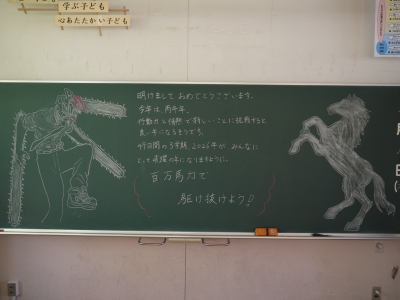 学ぶ子ども
心あたたかい子ども
明けまして おめでとうございます。
今年は、丙午年。
行動力と情熱で新しいことに挑戦すると
良い年になるそうです。
49日間の3学期、2026年が みんなに
とって飛躍の年になりますように。
百万馬力で
駆け抜けよう!